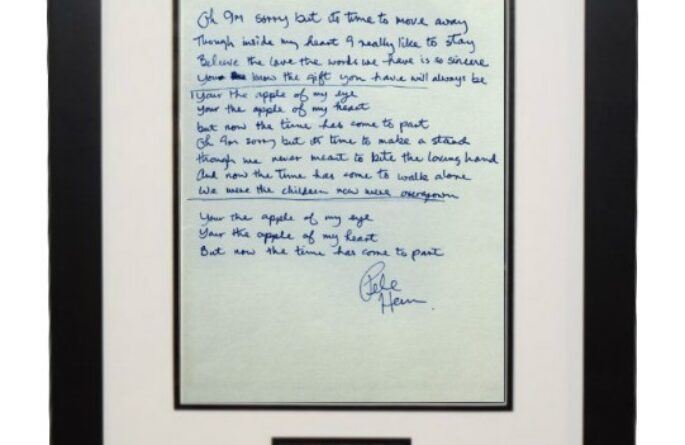 Oh I'm sorry but its time to move away
Though inside my heart I really like to stay
Believe the love the words we have is so sincere
You know the gift you have will always be
Your the apple of my eye
Your the apple of my heart
but now the time has come to part
Oh I'm sorry but its time to make a stand
though we never meant to bite the loving hand
And now the time has come to walk alone
We were the children now were overgrown
Your the apple of my eye
Your the apple of my heart
But now the time has come to part
Pete
Ham